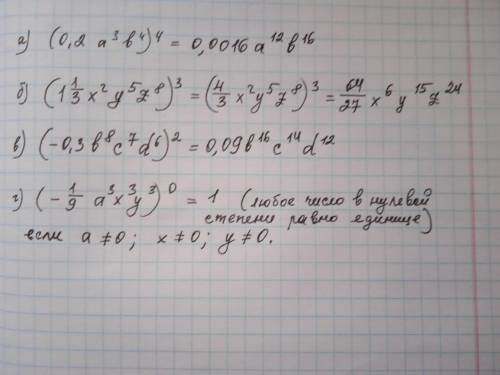 а) (0,2 a³b⁴)⁴ = 0,0016 a¹²b¹⁶
б) (1 1/3 x²y⁵z⁸)³ = (4/3 x²y⁵z⁸)³ = 64/27 x⁶ y¹⁵ z²⁴
в) (-0,3 b⁸c⁷d⁶)² = 0,09 b¹⁶ c¹⁴ d¹²
г) (- 1/9 a³x³y³)⁰ = 1 (любое число в нулевой
степени равно единице)
если a ≠ 0; x ≠ 0; y ≠ 0.